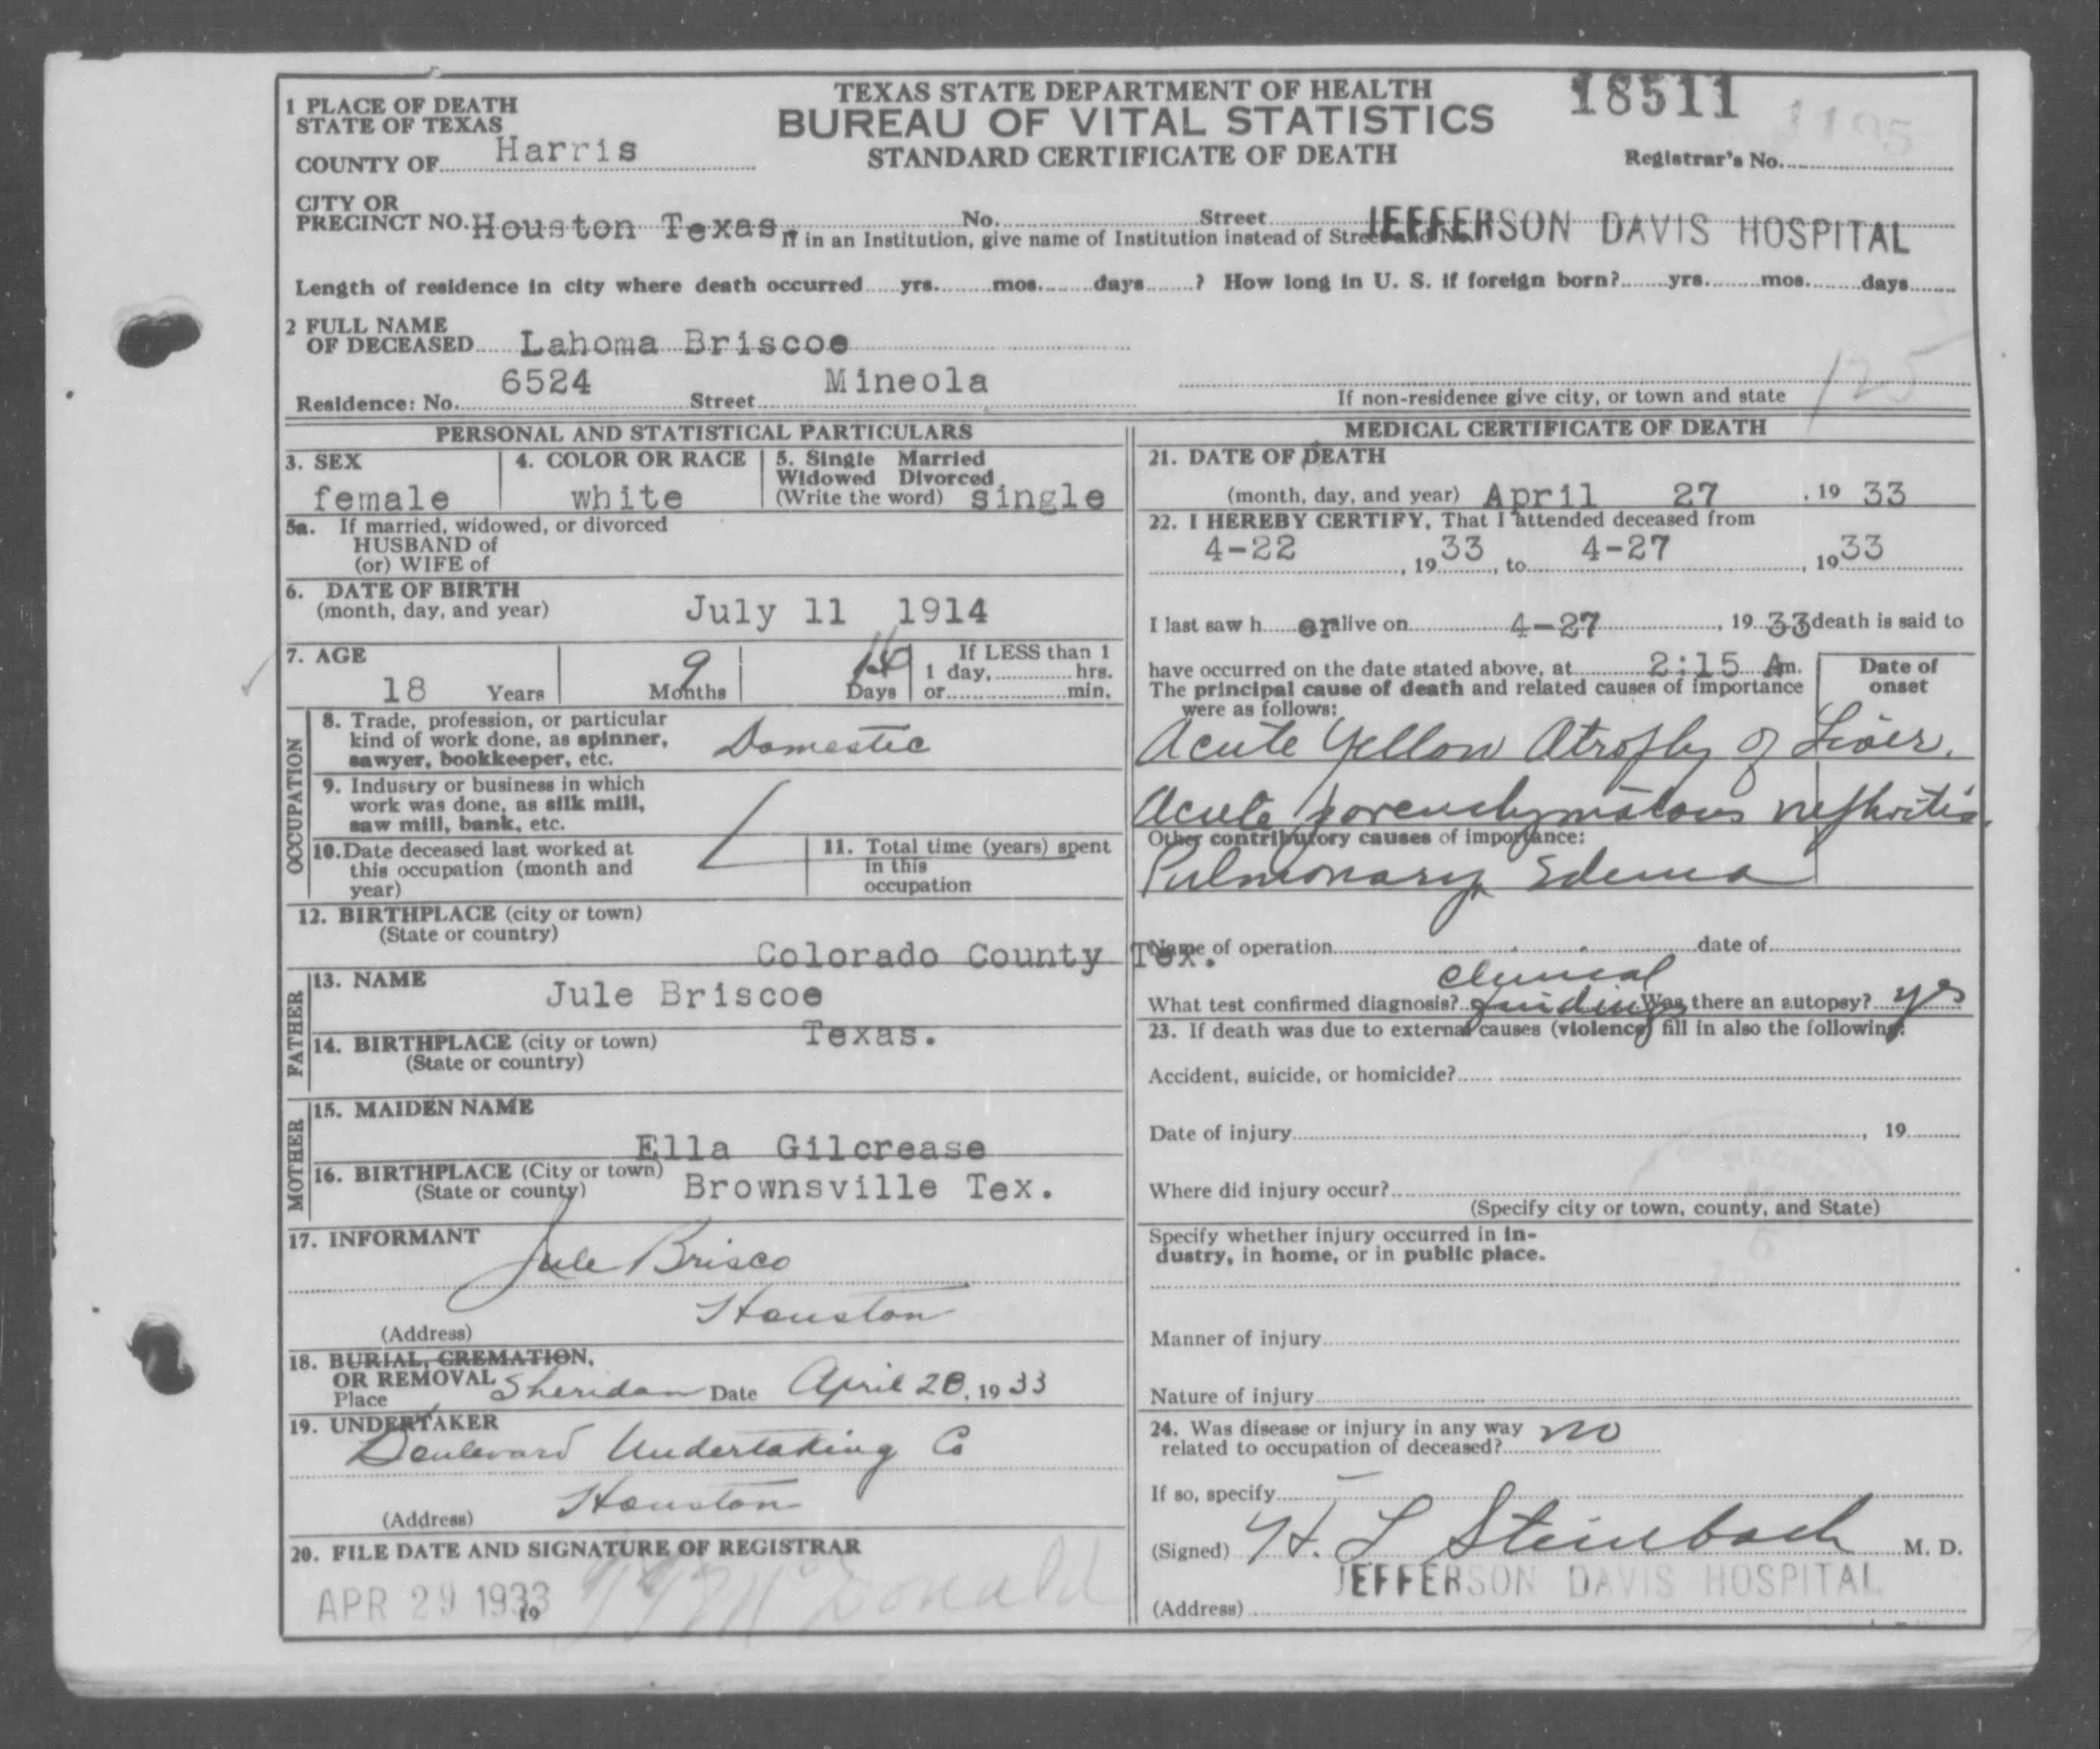 1 PLACE OF DEATH
STATE OF TEXAS
COUNTY OF Harris
TEXAS STATE DEPARTMENT OF HEALTH
BUREAU OF VITAL STATISTICS
STANDARD CERTIFICATE OF DEATH
18511
1195
Registrar's No.
CITY OR
PRECINCT NO. Houston Texas. No. Street JEFFERSON DAVIS HOSPITAL
If in an Institution, give name of Institution instead of Street and No.
Length of residence in city where death occurred yrs. mos. days ? How long in U. S. if foreign born? yrs. mos. days
2 FULL NAME
OF DECEASED Lahoma Briscoe
Residence: No. 6524 Street Mineola
If non-residence give city, or town and state
125
PERSONAL AND STATISTICAL PARTICULARS
3. SEX female
4. COLOR OR RACE white
5. Single Married
Widowed Divorced
(Write the word) single
5a. If married, widowed, or divorced
HUSBAND of
(or) WIFE of
6. DATE OF BIRTH
(month, day, and year) July 11 1914
7. AGE
18 Years 9 Months Days
If LESS than 1
1 day, hrs.
or min.
OCCUPATION
8. Trade, profession, or particular
kind of work done, as spinner,
sawyer, bookkeeper, etc. Domestic
9. Industry or business in which
work was done, as silk mill,
saw mill, bank, etc.
10. Date deceased last worked at
this occupation (month and
year)
11. Total time (years) spent
in this
occupation
12. BIRTHPLACE (city or town)
(State or country)
Colorado County Tex.
FATHER
13. NAME Jule Briscoe
14. BIRTHPLACE (city or town) Texas.
(State or country)
MOTHER
15. MAIDEN NAME
Ella Gilcrease
16. BIRTHPLACE (City or town)
(State or county) Brownsville Tex.
17. INFORMANT
Jule Brisco
(Address) Houston
18. BURIAL, CREMATION,
OR REMOVAL
Place Sheridan Date April 28, 19 33
19. UNDERTAKER
Boulevard Undertaking Co
(Address) Houston
20. FILE DATE AND SIGNATURE OF REGISTRAR
APR 29 1933 19 McDonald
MEDICAL CERTIFICATE OF DEATH
21. DATE OF DEATH
(month, day, and year) April 27, 19 33
22. I HEREBY CERTIFY, That I attended deceased from
4-22, 19 33, to 4-27, 19 33
I last saw h er alive on 4-27, 19 33 death is said to
have occurred on the date stated above, at 2:15 A m.
The principal cause of death and related causes of importance
were as follows:
Date of
onset
Acute Yellow Atrophy of Liver.
Acute parenchymatous nephritis.
Other contributory causes of importance:
Pulmonary Edema
Name of operation date of
What test confirmed diagnosis? clinical findings Was there an autopsy? yes
23. If death was due to external causes (violence) fill in also the following:
Accident, suicide, or homicide?
Date of injury , 19
Where did injury occur?
(Specify city or town, county, and State)
Specify whether injury occurred in in-
dustry, in home, or in public place.
Manner of injury
Nature of injury
24. Was disease or injury in any way
related to occupation of deceased? no
If so, specify
(Signed) H. L Steinbach M. D.
JEFFERSON DAVIS HOSPITAL
(Address)